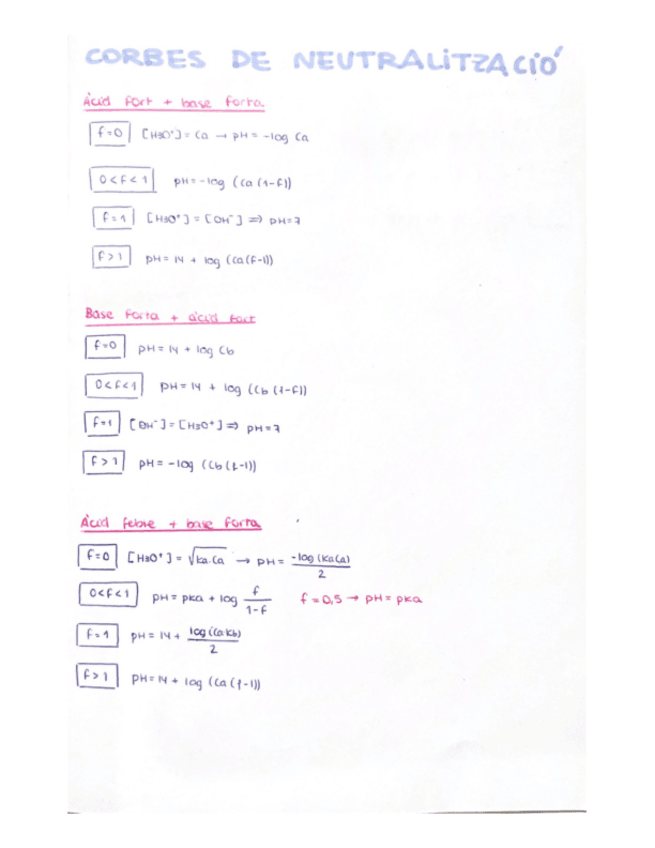 CORBES DE NEUTRALITZACIÓ
Àcid fort + base forta
f=0 [H3O⁺] = Ca → pH = -log Ca
0<f<1 pH = -log (Ca (1-f))
f=1 [H3O⁺] = [OH⁻] ⇒ pH=7
f>1 pH = 14 + log (Ca(f-1))
Base forta + àcid fort
f=0 pH = 14 + log Cb
0<f<1 pH = 14 + log (Cb (1-f))
f=1 [OH⁻] = [H3O⁺] ⇒ pH=7
f>1 pH = -log (Cb (f-1))
Àcid feble + base forta
f=0 [H3O⁺] = √Ka.Ca → pH = -log (Ka Ca) / 2
0<f<1 pH = pKa + log f / 1-f f = 0,5 → pH = pKa
f=1 pH = 14 + log (Ca Kb) / 2
f>1 pH = 14 + log (Ca (f-1))